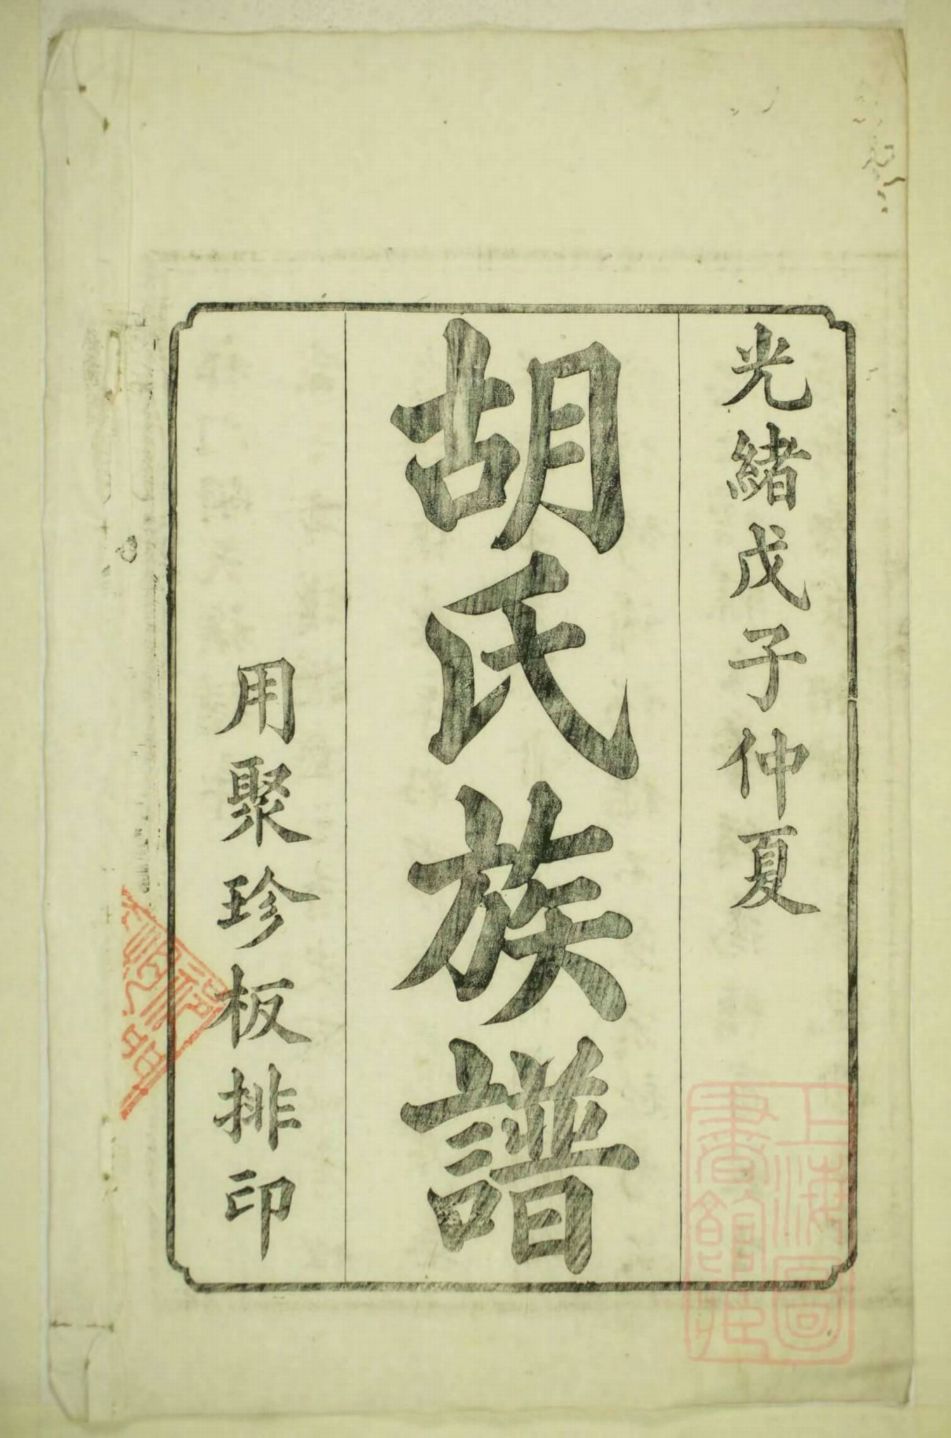 光緒戊子仲夏
胡氏族譜
用聚珍板排印
上海圖
書館藏